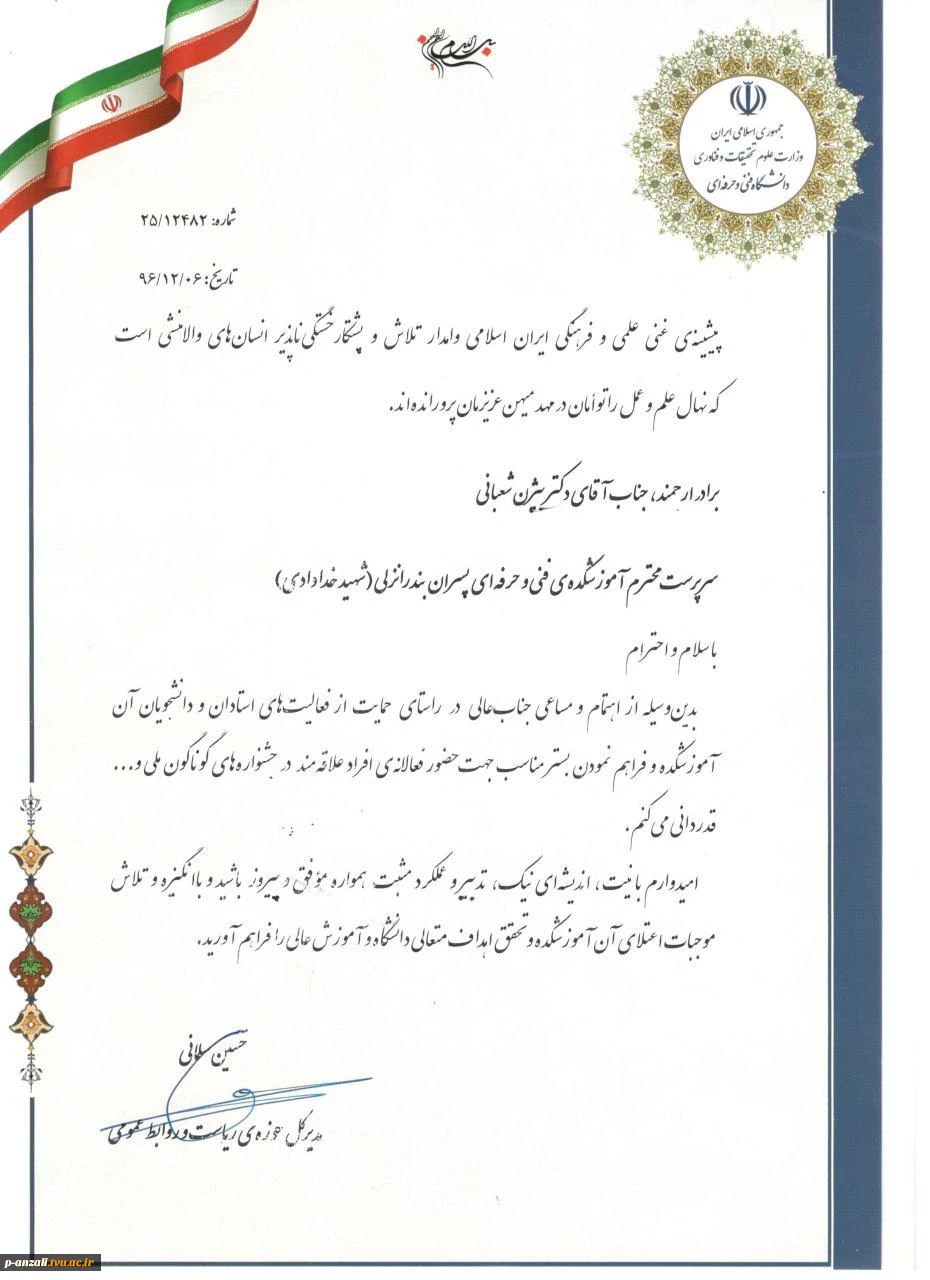 بسم الله الرحمن الرحیم
جمهوری اسلامی ایران
وزارت علوم تحقیقات و فناوری
دانشگاه فنی و حرفه‌ای
شماره: ۲۵/۱۲۴۸۲
تاریخ: ۹۶/۱۲/۰۶
پیشینه‌ی غنی علمی و فرهنگی ایران اسلامی وامدار تلاش و پشتکار خستگی‌ناپذیر انسان‌های والامنشی است
که نهال علم و عمل را توأمان در مهد میهن عزیزمان پرورانده‌اند.
برادر ارجمند، جناب آقای دکتر بیژن شعبانی
سرپرست محترم آموزشکده‌ی فنی و حرفه‌ای پسران بندرانزلی (شهید خدادادی)
باسلام و احترام
بدین‌وسیله از اهتمام و مساعی جناب‌عالی در راستای حمایت از فعالیت‌های استادان و دانشجویان آن
آموزشکده و فراهم نمودن بستر مناسب جهت حضور فعالانه‌ی افراد علاقه‌مند در جشنواره‌های گوناگون ملی و...
قدردانی می‌کنم.
امیدوارم با نیت، اندیشه‌ای نیک، تدبیر و عملکرد مثبت همواره مؤفق و پیروز باشید و با انگیزه و تلاش
موجبات اعتلای آن آموزشکده و تحقق اهداف متعالی دانشگاه و آموزش عالی را فراهم آورید.
حسین
مدیرکل حوزه‌ی ریاست و روابط عمومی
p-anzali.tvu.ac.ir